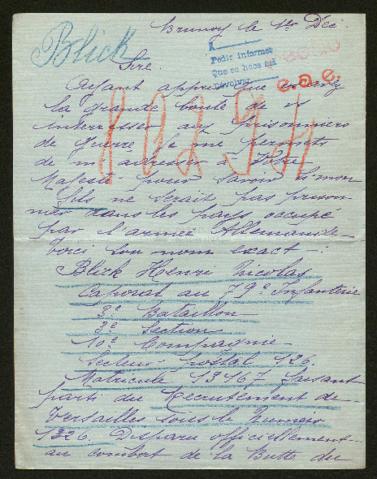 Brunoy le 1er Dec
Blick
Sire
Pedir informes
Que se hace así
c.a.e.
Ayant appris que avez
la grande bonté de vs
interesser aux prisonniers
de guerre je me permets
de m'adresser à Votre
Majesté pour savoir si mon
fils ne serait pas prison
nier dans les pays occupé
par l'armée Allemande
Voici son nom exact:
Blick Henri Nicolas
Caporal au 79e Infanterie
3e Bataillon
3e Section
10e Compagnie
Secteur postal 126.
Matricule 13467 faisant
parti du Recrutement de
Versailles sous le numero
1326. Disparu officiellement
au combat de la Butte du